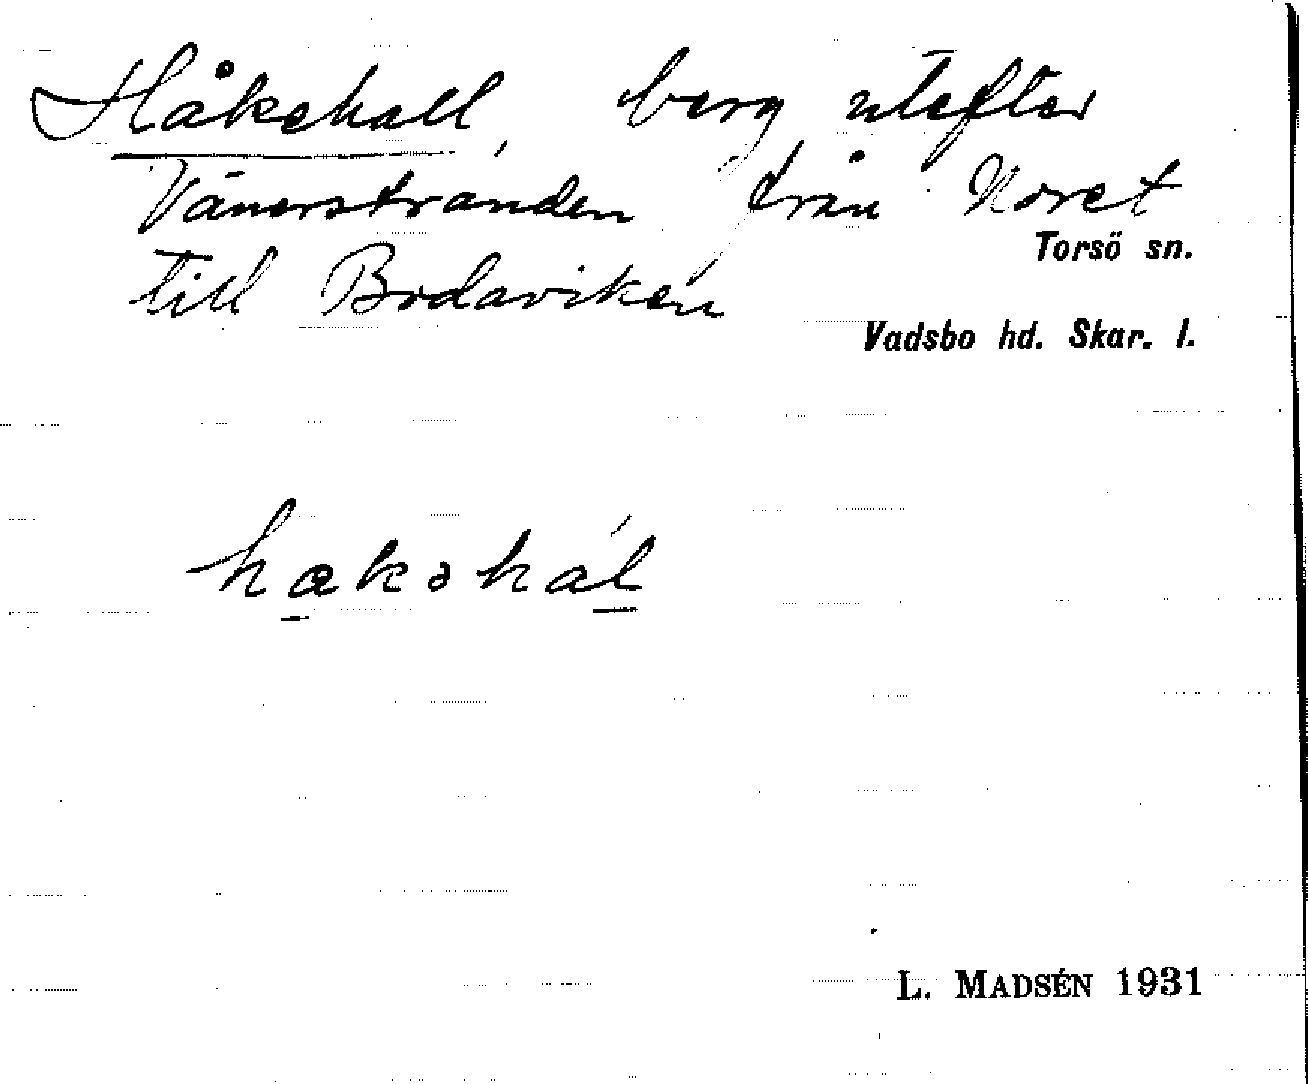 Håkehall, berg utefter
Vänerstranden från Noret
Torsö sn.
till Bodaviken
Vadsbo hd. Skar. l.
hakəhál
L. MADSÉN 1931